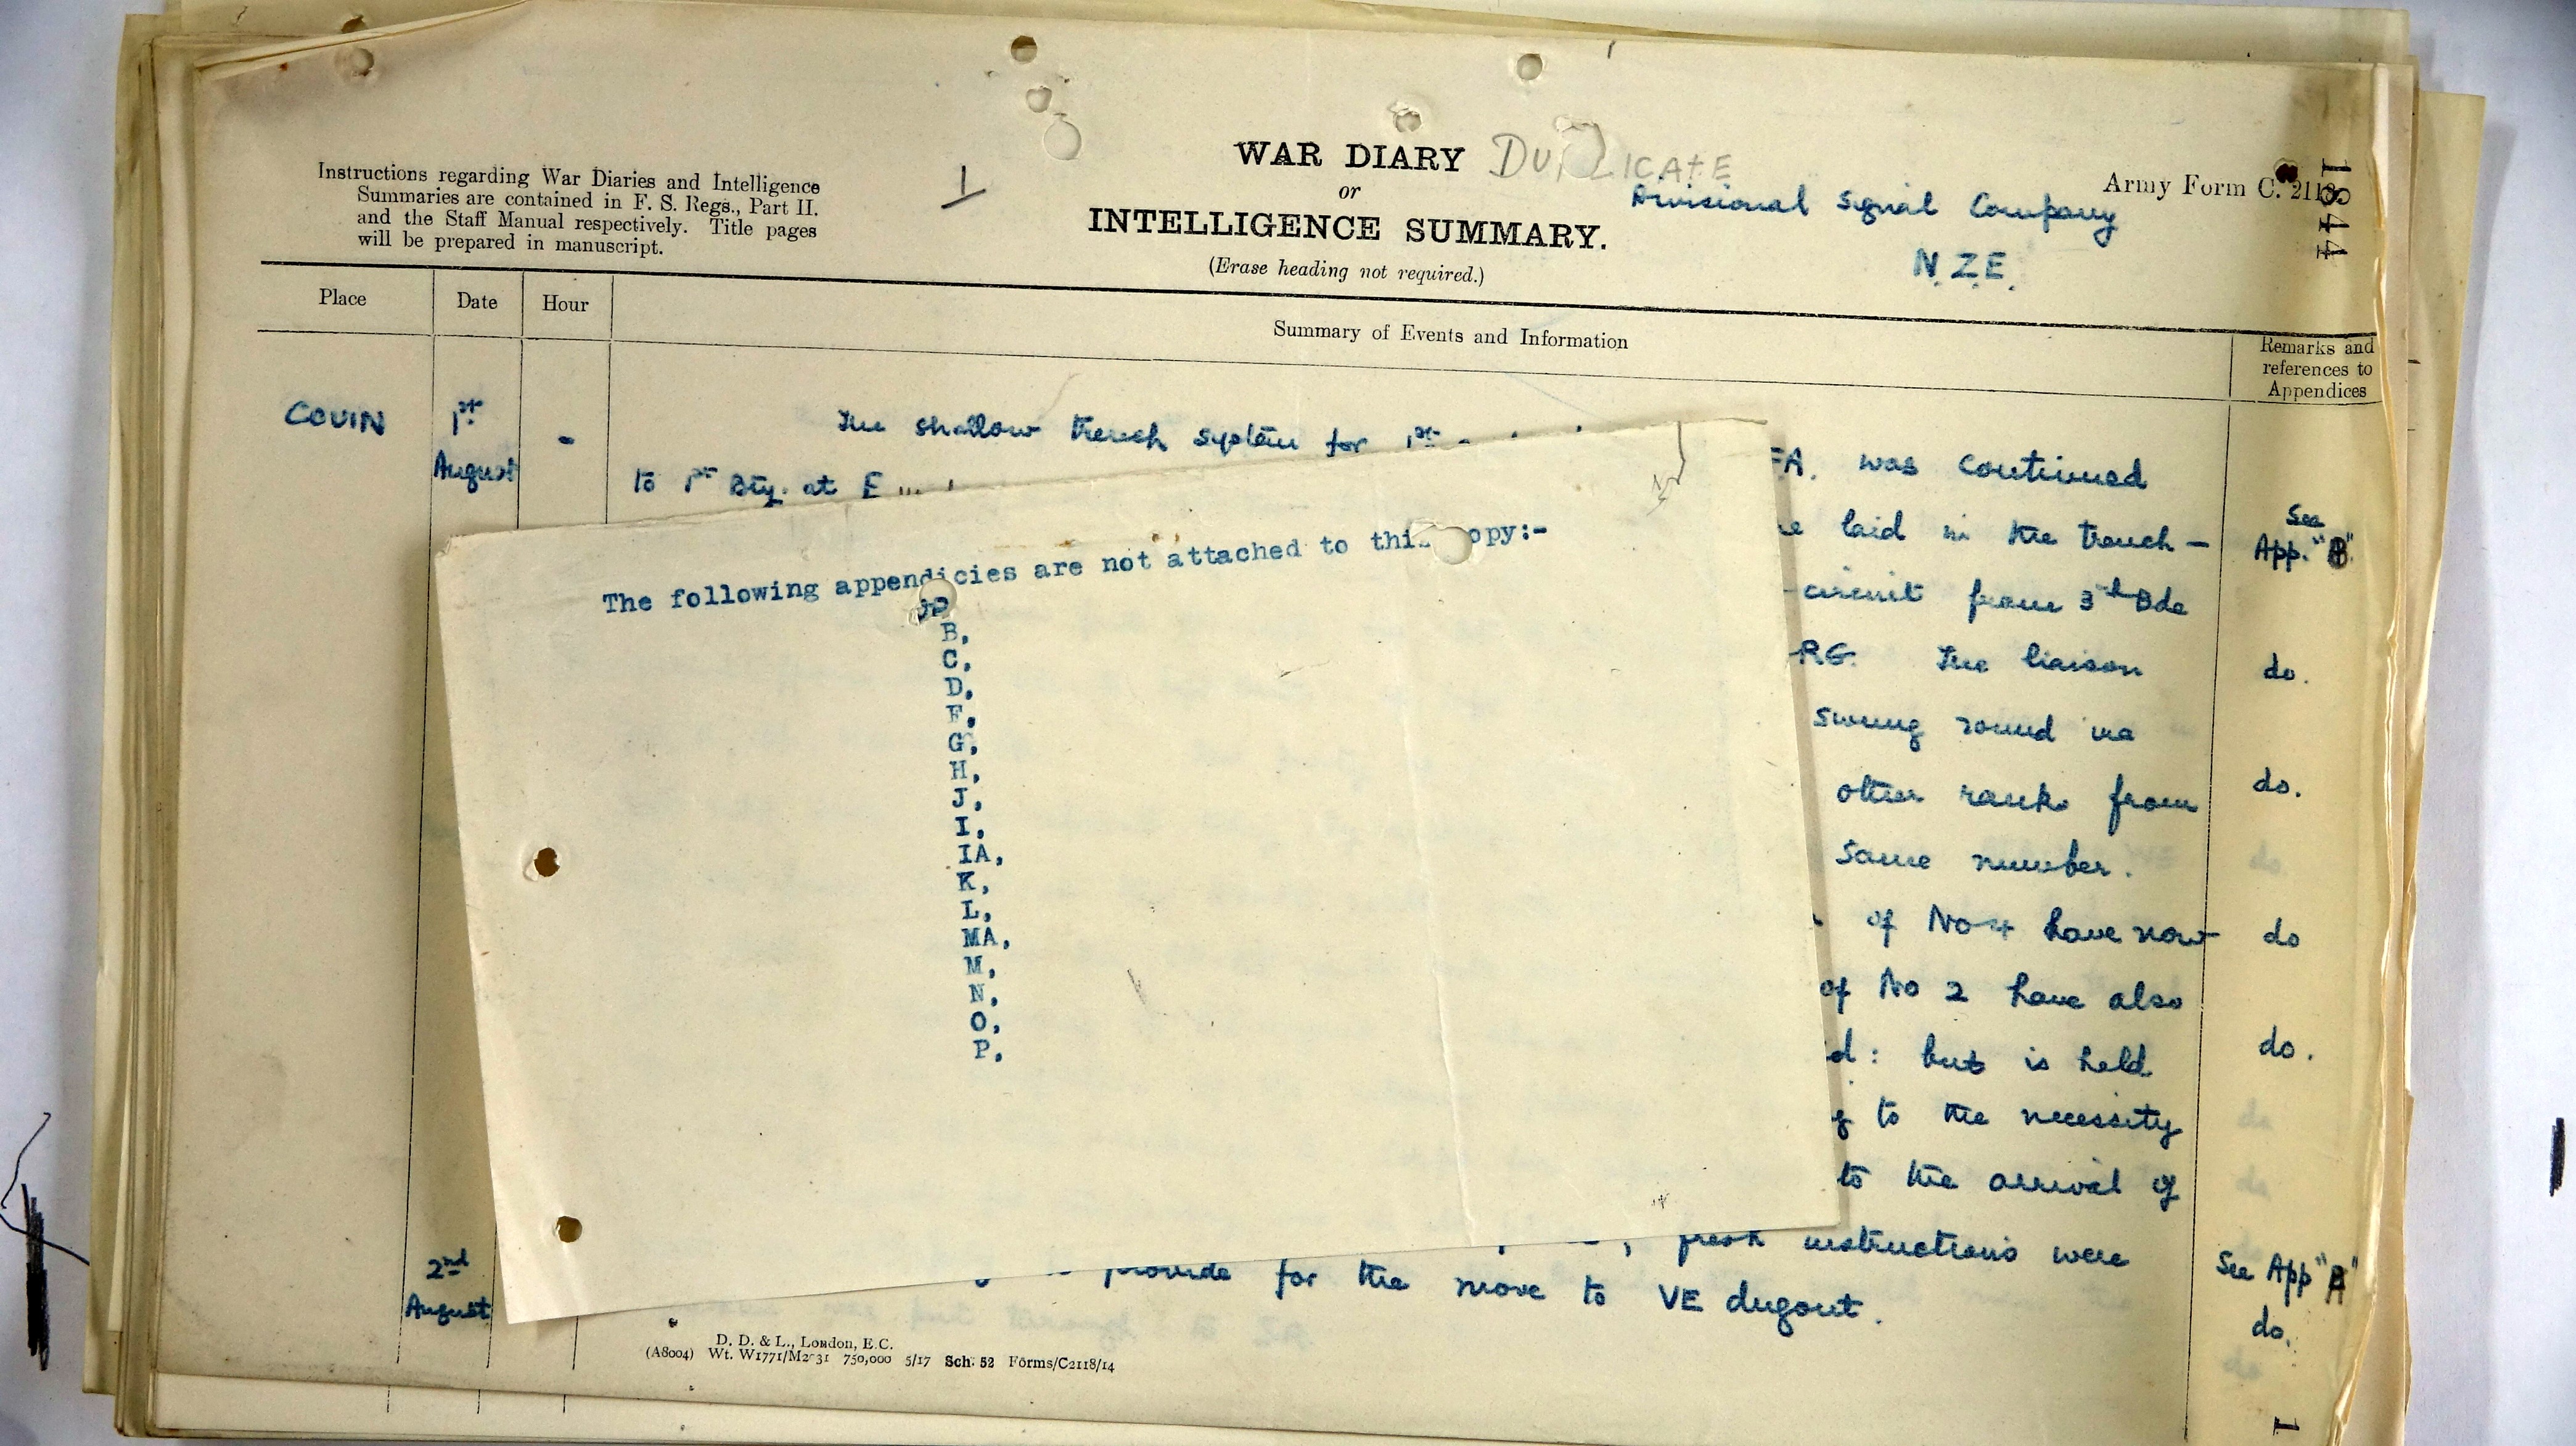 WAR DIARY DUPLICATE
or
INTELLIGENCE SUMMARY.
(Erase heading not required.)
Instructions regarding War Diaries and Intelligence
Summaries are contained in F. S. Regs., Part II.
and the Staff Manual respectively. Title pages
will be prepared in manuscript.
1
Army Form C. 2118.
Divisional Signal Company
N.Z.E.
18441
Place Date Hour Summary of Events and Information Remarks and references to Appendices
COUIN 1st August - The shallow trench system for 1st
FA. was continued
to 1st Bty. at E
laid in the trench - See App. "B"
circuit from 3rd Bde
RG. The liaison do.
swung round via
other ranks from do.
same number.
of No 4 have now do
of No 2 have also
: but is held do.
to the necessity
to the arrival of
2nd August fresh instructions were See App "A"
provide for the move to VE dugout. do.
The following appendicies are not attached to this copy:-
B,
C,
D,
F,
G,
H,
J,
I,
IA,
K,
L,
MA,
M,
N,
O,
P,
D. D. & L., London, E.C.
(A8004) Wt. W1771/M2031 750,000 5/17 Sch. 52 Forms/C2118/14
1